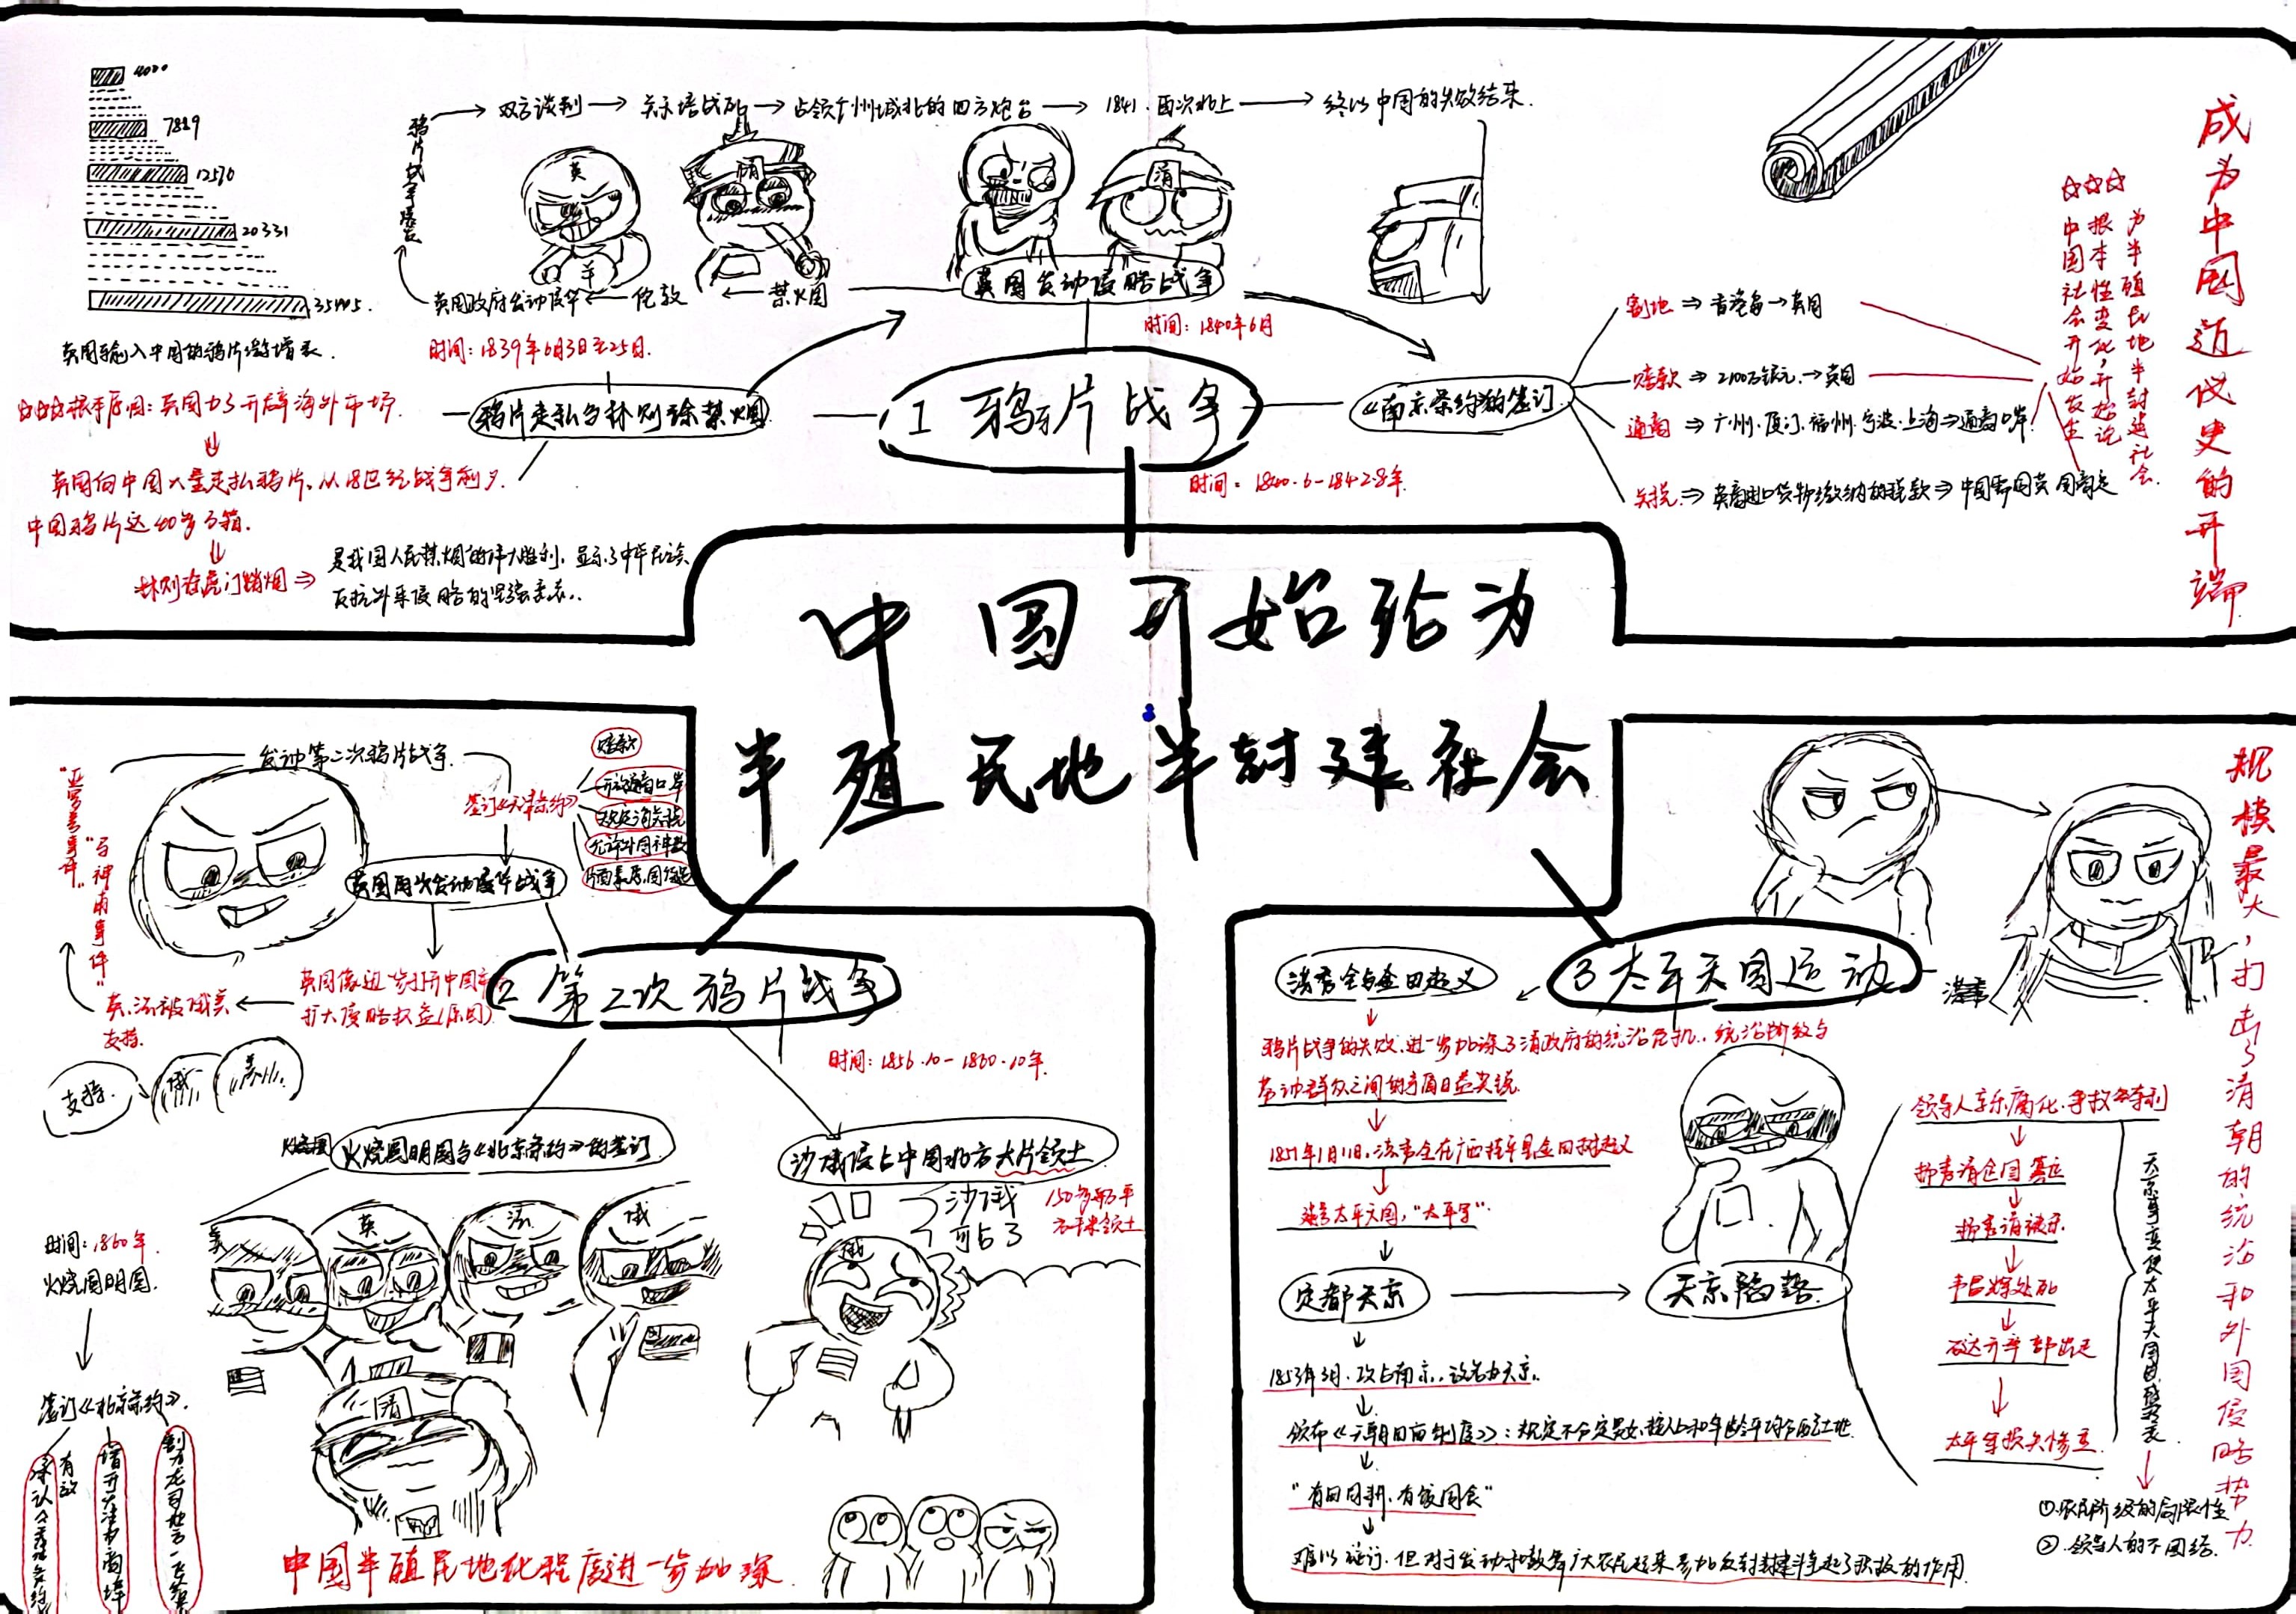 4000
7889
12570
20331
35445
英国输入中国的鸦片激增表.
☆☆☆根本原因:英国为了开辟海外市场.
英国向中国大量走私鸦片,从
中国鸦片达40多万箱.
林则徐虎门销烟⇒
是我国人民禁烟的伟大胜利,显示了中华民族
反抗外来侵略的坚强意志.
→双方谈判→
→占领广州城北的四方炮台→1841.再次北上→终以中国的失败结果.
英
清
清
英国政府发动侵华←伦敦←禁烟
时间:1839年6月3日至25日.
鸦片走私与林则徐禁烟
英国发动侵略战争
时间:1840年6月
1 鸦片战争
时间:1840.6-1842.8年.
《南京条约》的签订
割地⇒香港岛→英国
赔款⇒2100万银元→英国
通商⇒广州.厦门.福州.宁波.上海⇒通商口岸
关税⇒英商进出口货物缴纳的税款⇒中国需同英国商定
☆☆☆
中国社会开始发生
根本性变化,开始沦
为半殖民地半封建社会.
成为中国近代史的开端
中国开始沦为
半殖民地半封建社会
发动第二次鸦片战争.
"亚罗号事件"
"马神甫事件"
签订《天津条约》
赔款
开放通商口岸
英国再次发动侵华战争
英国像进一步打开中国
扩大侵略权益(原因).
英.法被俄美
支持.
支持.
俄
美
2 第二次鸦片战争
时间:1856.10-1860.10年.
火烧圆明园与《北京条约》的签订
沙俄侵占中国北方大片领土
沙俄
可占了
150多万平
方千米领土
时间:1860年.
火烧圆明园.
签订《北京条约》.
承认《天津条约》
有效
增开天津为商埠
割九龙司地方一区给英
美
英
法
俄
俄
清
中国半殖民地化程度进一步加深
3 太平天国运动
洪秀全与金田起义
鸦片战争的失败,进一步加深了清政府的统治危机,统治阶级与
劳动群众之间的矛盾日益尖锐.
1851年1月11日,洪秀全在广西桂平县金田村起义
建号太平天国,"太平军".
定都天京
天京陷落
1853年3月.攻占南京,改名为天京.
颁布《天朝田亩制度》:规定不分男女,按人口和年龄平均分配土地.
"有田同耕,有饭同食"
难以施订.但对于发动和鼓舞广大农民起来参加反封建斗争起了积极的作用.
领导人享乐腐化,争权夺利
杨秀清企图篡位
杨秀清被杀
韦昌辉处死
石达开率部出走
太平军损失惨重
天京事变使太平天国由盛转衰
①.农民阶级的局限性
②.领导人的不团结.
规模最大,打击了清朝的统治和外国侵略势力